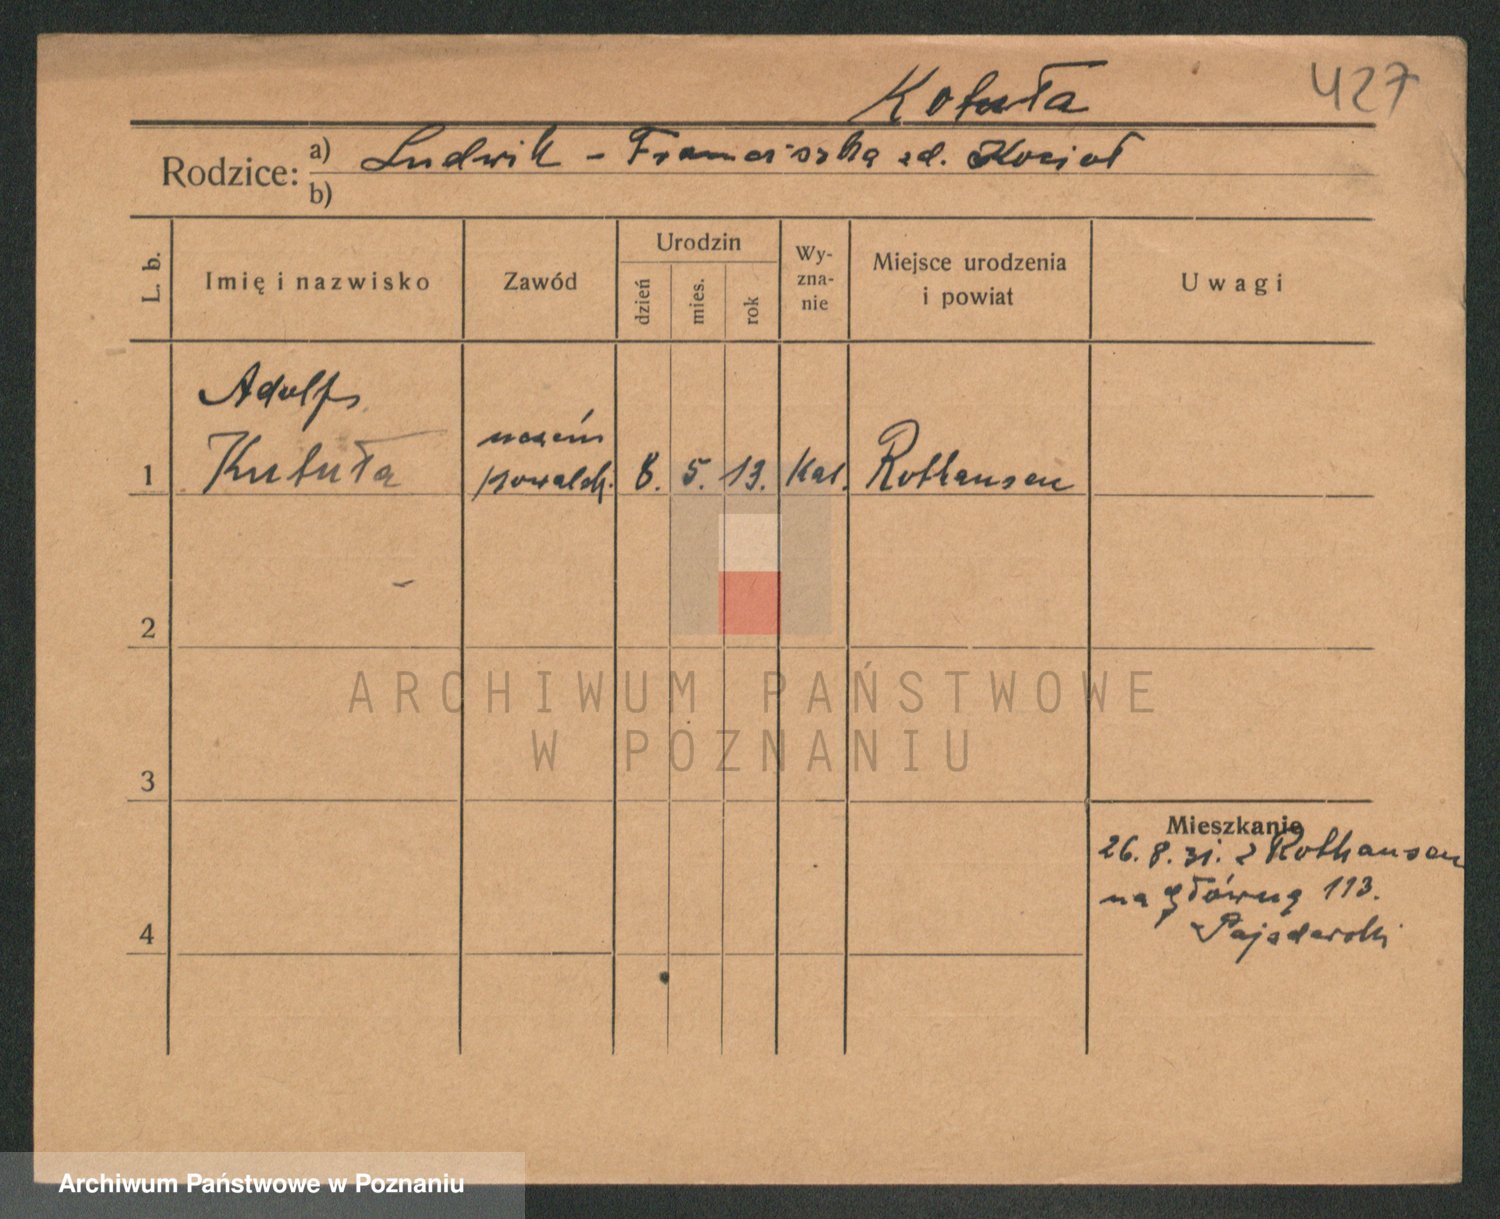 427
Kotuła
Rodzice: a) Ludwik - Franciszka zd. Kozioł
b)
L. b.
Imię i nazwisko
Zawód
Urodzin
dzień
mies.
rok
Wy-
zna-
nie
Miejsce urodzenia
i powiat
Uwagi
Adolf
1 Kutuła
uczeń
kowalsk. 8. 5. 13. Kat. Rothausen
2
ARCHIWUM PAŃSTWOWE
W POZNANIU
3
Mieszkanie
26. 8. 31. z Rothausen
na główną 113.
4
Archiwum Państwowe w Poznaniu